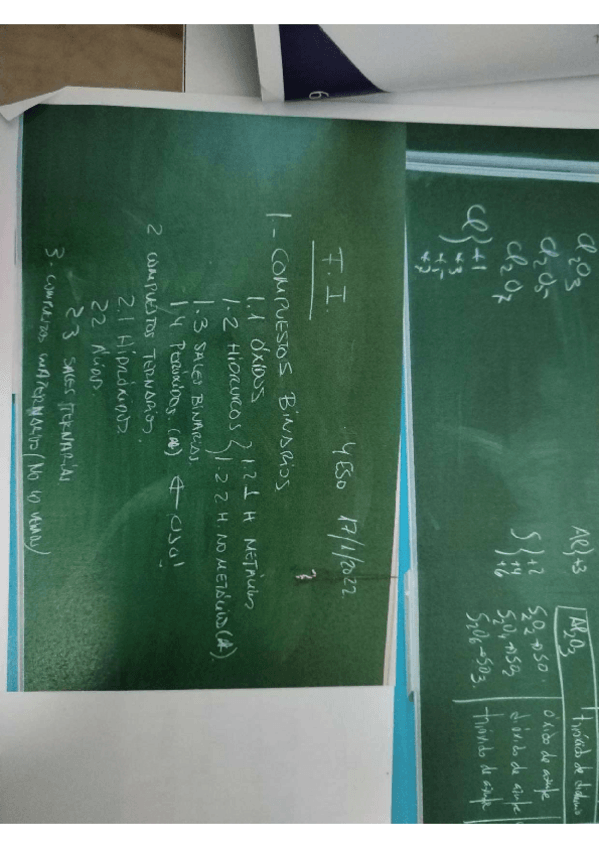 F.I. 4ESO 17/1/2022
1- COMPUESTOS BINARIOS
1.1 ÓXIDOS
1.2 HIDRUROS } 1.2.1 H METÁLICOS
1.2.2 H. NO METÁLICOS (*)
1.3 SALES BINARIAS.
1.4 PERÓXIDOS (*) ← OJO!
2 COMPUESTOS TERNARIOS.
2.1 HIDRÓXIDOS
2.2 ÁCIDOS.
2.3 SALES TERNARIAS
3- COMPUESTOS CUATERNARIOS (NO LO VEMOS)
Cl2O3
Cl2O5
Cl2O7
Cl } +1
+3
+5
+7
Al } +3
Al2O3
trióxido de dialuminio
S } +2
+4
+6
S2O2 → SO.
óxido de azufre
S2O4 → SO2
dióxido de azufre
S2O6 → SO3.
trióxido de azufre
6